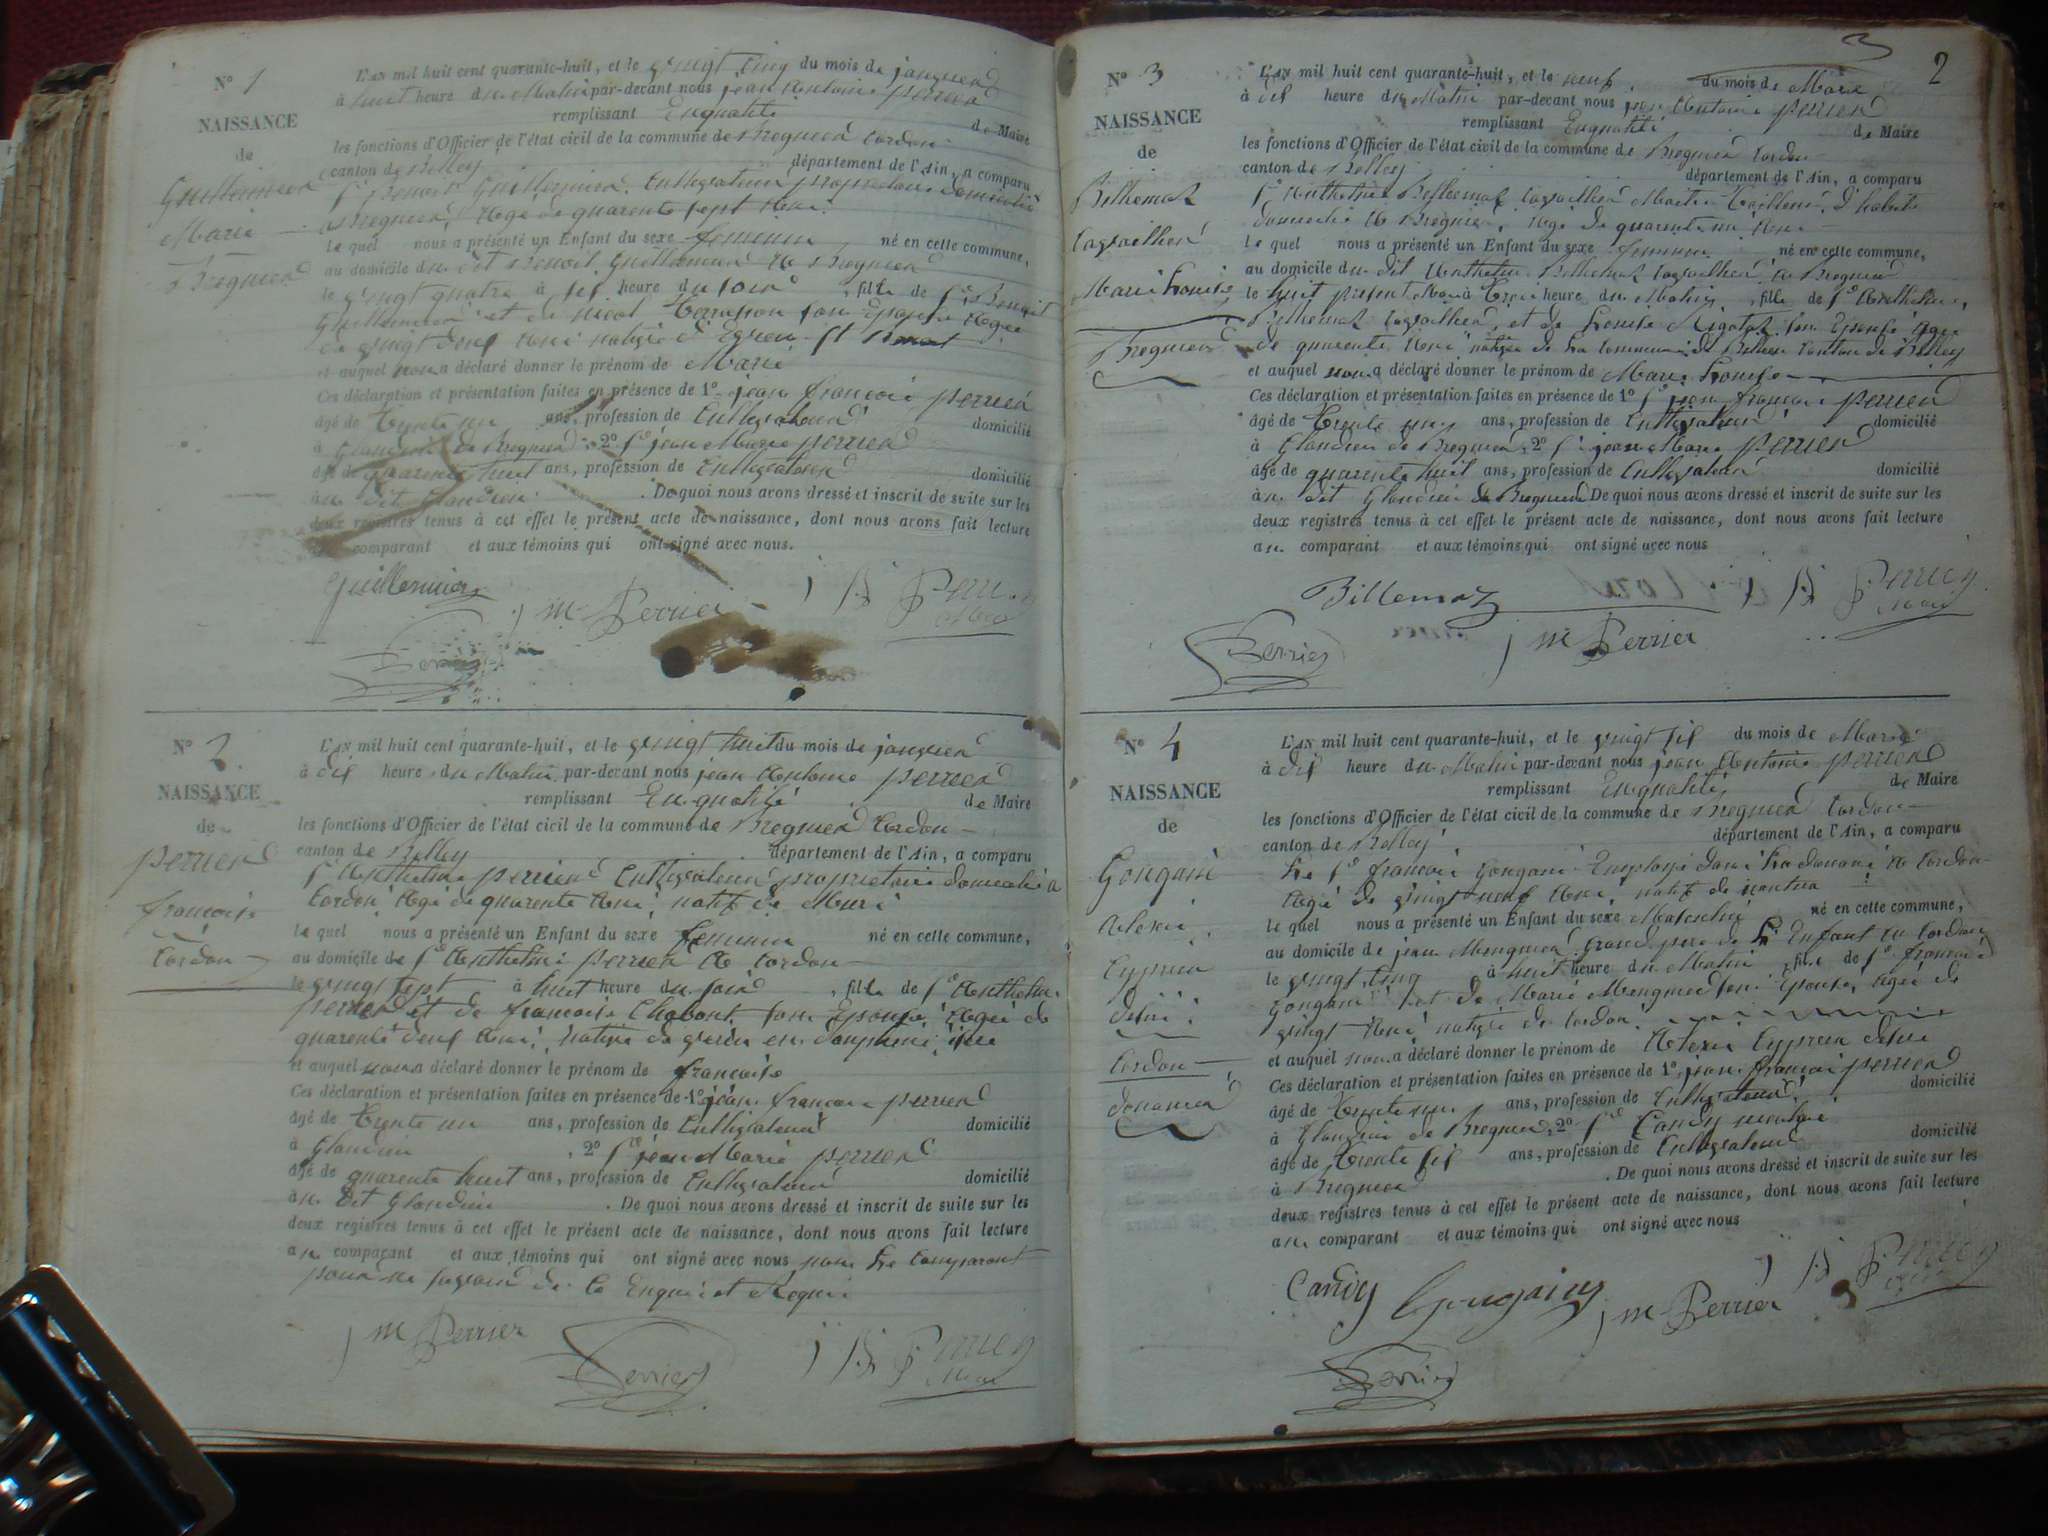 N° 1
NAISSANCE
de
Guillermier
Marie
Bregnier
L'AN mil huit cent quarante-huit, et le vingt cinq du mois de janvier
à huit heure du Matin par-devant nous jean Antoine perrier
remplissant En qualité de Maire
les fonctions d'Officier de l'état civil de la commune de Bregnier Cordon
canton de Belley département de l'Ain, a comparu
Sr Benoit Guillermier Cultivateur proprietaire domicilié
a Bregnier Agé de quarente sept Ans
le quel nous a présenté un Enfant du sexe feminin né en cette commune,
au domicile du dit Benoit Guillermier a Bregnier
le vingt quatre à six heure du soir, fille de Sr Benoit
Guillermier et de son Epouse Agée
de vingt deux Ans native d'
et auquel nous a déclaré donner le prénom de Marie
Ces déclaration et présentation faites en présence de 1° jean françois perrier
âgé de trente un ans, profession de Cultivateur domicilié
à Glandieu de Bregnier, 2° Sr jean Marie perrier
âgé de quarente huit ans, profession de Cultivateur domicilié
au dit Glandieu. De quoi nous avons dressé et inscrit de suite sur les
deux registres tenus à cet effet le présent acte de naissance, dont nous avons fait lecture
comparant et aux témoins qui ont signé avec nous.
Guillermier
j m Perrier
j A Perrier
Maire
Perrier
N° 2
NAISSANCE
de
perrier
françoise
Cordon
L'AN mil huit cent quarante-huit, et le vingt huit du mois de janvier
à dix heure du Matin par-devant nous jean Antoine perrier
remplissant En qualité de Maire
les fonctions d'Officier de l'état civil de la commune de Bregnier Cordon
canton de Belley département de l'Ain, a comparu
Sr Anthelme perrier Cultivateur proprietaire domicilié a
Cordon Agé de quarente Ans, natif de Murs
le quel nous a présenté un Enfant du sexe feminin né en cette commune,
au domicile de Sr Anthelme perrier A Cordon
le vingt sept à huit heure du soir, fille de Sr Anthelme
perrier et de françoise Chabout son Epouse Agée de
quarente deux Ans, native de en dauphiné isere
et auquel nous a déclaré donner le prénom de françoise
Ces déclaration et présentation faites en présence de 1° jean françois perrier
âgé de trente un ans, profession de Cultivateur domicilié
à Glandieu, 2° Sr jean Marie perrier
âgé de quarente huit ans, profession de Cultivateur domicilié
au dit Glandieu. De quoi nous avons dressé et inscrit de suite sur les
deux registres tenus à cet effet le présent acte de naissance, dont nous avons fait lecture
au comparant et aux témoins qui ont signé avec nous non Le Comparant
pour ne savoir de Ce Enquis et Requis
j m Perrier
Perrier
j A Perrier
Maire
3
2
N° 3
NAISSANCE
de
Billemaz
Marie Louise
Bregnier
L'AN mil huit cent quarante-huit, et le neuf du mois de Mars
à dix heure du Matin par-devant nous jean Antoine perrier
remplissant En qualité de Maire
les fonctions d'Officier de l'état civil de la commune de Bregnier Cordon
canton de Belley département de l'Ain, a comparu
Sr Anthelme Billemaz Maitre Tailleur d'habits
domicilié A Bregnier, Agé de quarente un Ans
le quel nous a présenté un Enfant du sexe feminin né en cette commune,
au domicile du dit Anthelme Billemaz a Bregnier
le huit present Mois à trois heure du Matin, fille de Sr Anthelme
Billemaz et de Louise Rigotat son Epouse Agée
de quarente Ans native de La Commune de Canton de Belley
et auquel nous a déclaré donner le prénom de Marie Louise
Ces déclaration et présentation faites en présence de 1° Sr jean françois perrier
âgé de trente un ans, profession de Cultivateur domicilié
à Glandieu de Bregnier, 2° Sr jean Marie perrier
âgé de quarente huit ans, profession de Cultivateur domicilié
au dit Glandieu de Bregnier De quoi nous avons dressé et inscrit de suite sur les
deux registres tenus à cet effet le présent acte de naissance, dont nous avons fait lecture
au comparant et aux témoins qui ont signé avec nous
Billemaz
j A Perrier
Maire
Perrier
j m Perrier
N° 4
NAISSANCE
de
Gongain
Alexis
Cyprien
désiré
Cordon
douanier
L'AN mil huit cent quarante-huit, et le vingt six du mois de Mars
à dix heure du Matin par-devant nous jean Antoine perrier
remplissant En qualité de Maire
les fonctions d'Officier de l'état civil de la commune de Bregnier Cordon
canton de Belley département de l'Ain, a comparu
Le Sr françois Gongain Employé dans La douane A Cordon
Agé de vingt neuf Ans, natif de nantua
le quel nous a présenté un Enfant du sexe Masculin né en cette commune,
au domicile de jean Mengnier grand pere de L'Enfant au Cordon
le vingt cinq à huit heure du Matin, fils de Sr françois
Gongain et de Marie Mengnier son Epouse, Agée de
vingt Ans native de Cordon
et auquel nous a déclaré donner le prénom de Alexis Cyprien désiré
Ces déclaration et présentation faites en présence de 1° jean françois perrier
âgé de trente un ans, profession de Cultivateur domicilié
à Glandieu de Bregnier, 2° Sr Candy
âgé de trente six ans, profession de Cultivateur domicilié
à Bregnier. De quoi nous avons dressé et inscrit de suite sur les
deux registres tenus à cet effet le présent acte de naissance, dont nous avons fait lecture
au comparant et aux témoins qui ont signé avec nous
Candy
Gougain
j m Perrier
j A Perrier
Perrier